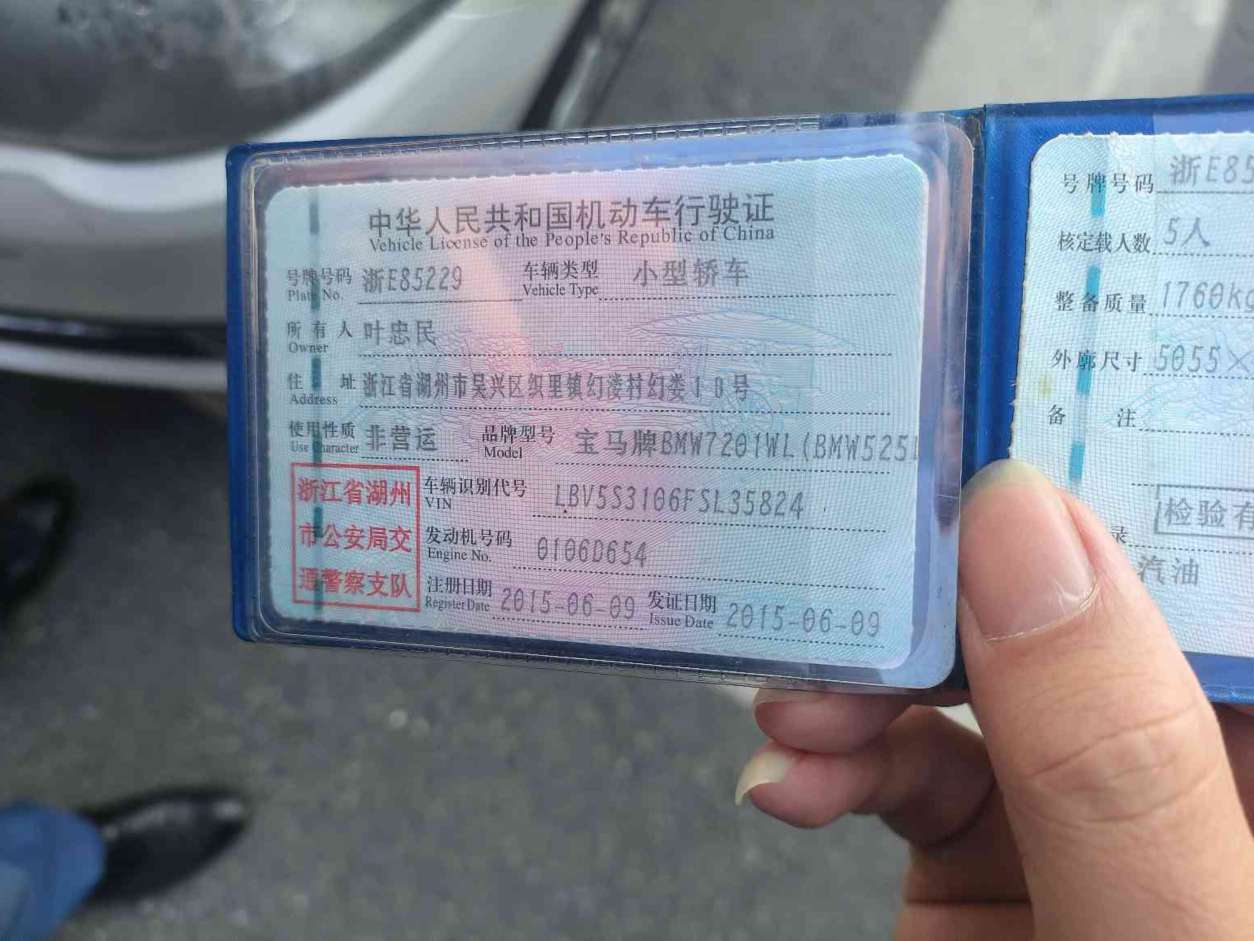 中华人民共和国机动车行驶证
Vehicle License of the People's Republic of China
号牌号码 浙E85229 车辆类型 小型轿车
Plate No. Vehicle Type
所有人 叶忠民
Owner
住址 浙江省湖州市吴兴区织里镇幻溇村幻娄18号
Address
使用性质 非营运 品牌型号 宝马牌BMW7201WL(BMW525L
Use Character Model
浙江省湖州
市公安局交
通警察支队
车辆识别代号 LBV5S3106FSL35824
VIN
发动机号码 0106D654
Engine No.
注册日期 2015-06-09 发证日期 2015-06-09
Register Date Issue Date
号牌号码 浙E85
核定载人数 5人
整备质量 1760kg
外廓尺寸 5055×
备注
检验有
录
汽油